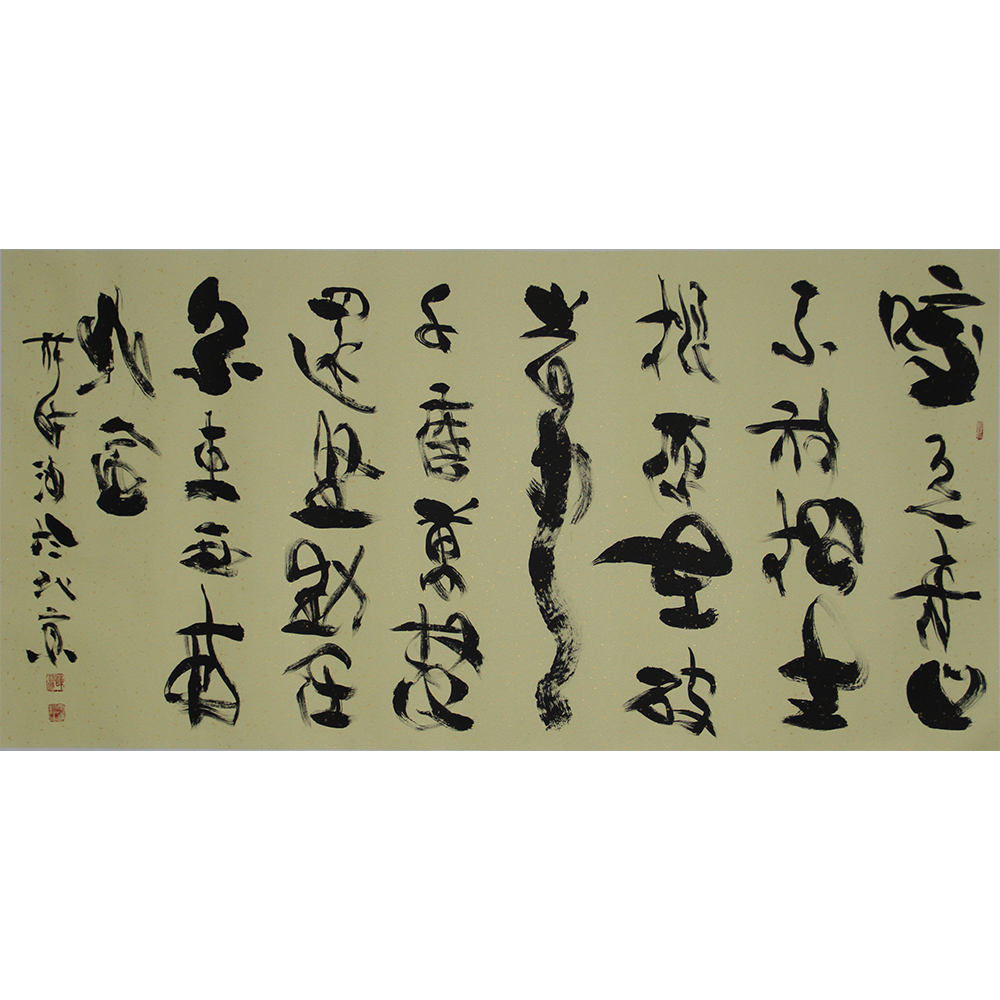 咬定青山
不放松立
根原在破
岩中
千磨萬擊
還堅勁任
尔東西南
北風
於北京